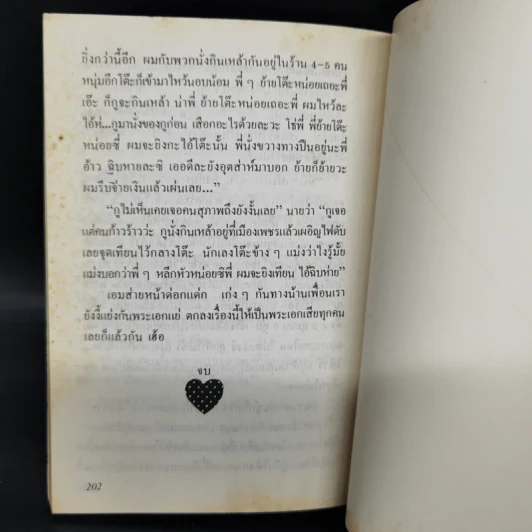 ยิ่งกว่านี้อีก ผมกับพวกนั่งกินเหล้ากันอยู่ในร้าน 4-5 คน
หนุ่มอีกโต๊ะก็เข้ามาไหว้นอบน้อม พี่ ๆ ย้ายโต๊ะหน่อยเถอะพี่
เอ๊ะ ก็กูจะกินเหล้า น่าพี่ ย้ายโต๊ะหน่อยเถอะพี่ ผมไหว้ละ
ไอ้ห่...กูมานั่งของกูก่อน เสือกอะไรด้วยละวะ โธ่พี่ พี่ย้ายโต๊ะ
หน่อยซี่ ผมจะยิงกะไอ้โต๊ะนั้น พี่นั่งขวางทางปืนอยู่นะพี่
อ้าว ฐิบหายละซิ เออดีละยังอุตส่าห์มาบอก ย้ายก็ย้ายวะ
ผมรีบจ่ายเงินแล้วเผ่นเลย...”
“กูไม่เห็นเคยเจอคนสุภาพถึงยังงั้นเลย” นายว่า “กูเจอ
แต่คนก้าวร้าวว่ะ กูนั่งกินเหล้าอยู่ที่เมืองเพชรแล้วเผอิญไฟดับ
เลยจุดเทียนไว้กลางโต๊ะ นักเลงโต๊ะข้าง ๆ แม่งว่าไงรู้มั้ย
แม่งบอกว่าพี่ ๆ หลีกหัวหน่อยซิพี่ ผมจะยิงเทียน ไอ้ฉิบห่าย”
เอมส่ายหน้าด๊อกแด๊ก เก่ง ๆ กันทางนั้นเพื่อนเรา
ยังงี้แย่งกันพระเอกแย่ ตกลงเรื่องนี้ให้เป็นพระเอกเสียทุกคน
เลยก็แล้วกัน เฮ้อ
จบ
202